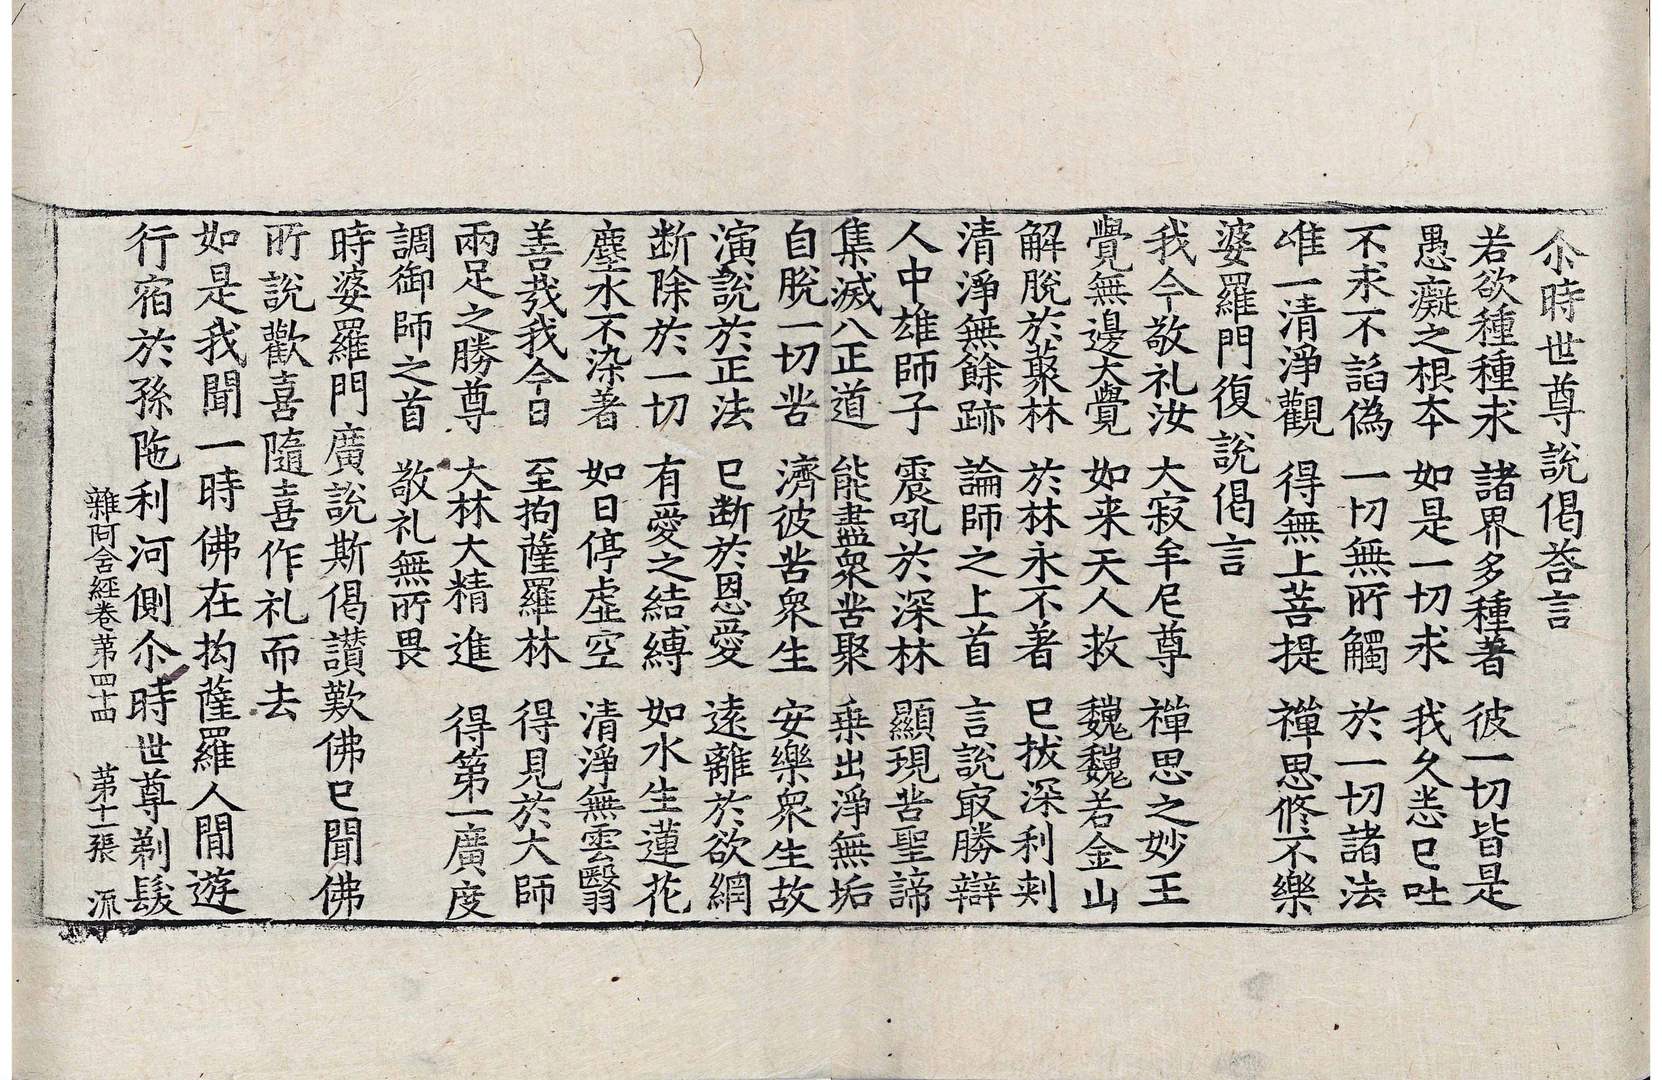 尒時世尊說偈荅言
若欲種種求　諸界多種著　彼一切皆是
愚癡之根本　如是一切求　我久悉已吐
不求不諂偽　一切無所觸　於一切諸法
唯一清淨觀　得無上菩提　禪思修不樂
婆羅門復說偈言
我今敬礼汝　大寂牟尼尊　禪思之妙王
覺無邊大覺　如来天人救　魏魏若金山
解脫於藂林　於林永不著　已拔深利刾
清淨無餘跡　論師之上首　言說㝡勝辯
人中雄師子　震吼於深林　顯現苦聖諦
集滅八正道　能盡衆苦聚　乗出淨無垢
自脫一切苦　濟彼苦衆生　安樂衆生故
演說於正法　已断於恩愛　遠離於欲網
断除於一切　有愛之結縛　如水生蓮花
塵水不染著　如日停虛空　清淨無雲翳
善哉我今日　至拘薩羅林　得見於大師
兩足之勝尊　大林大精進　得第一廣度
調御師之首　敬礼無所畏
時婆羅門廣說斯偈讃歎佛已聞佛
所說歡喜隨喜作礼而去
如是我聞一時佛在拘薩羅人閒遊
行宿於孫陁利河側尒時世尊剃髮
雜阿含經卷苐四十四　苐十一張　流